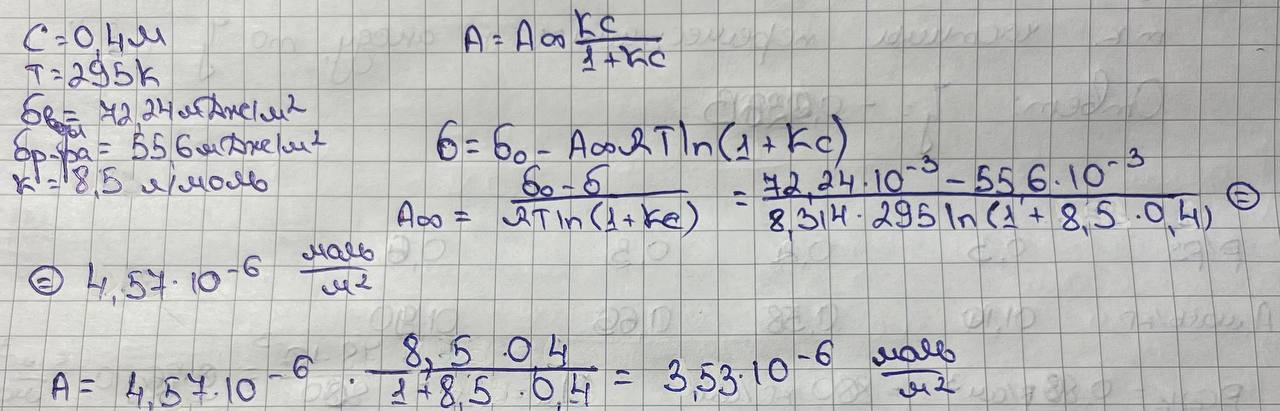 C = 0,4 М
T = 295 К
бводы = 72,24 мДж/м²
бр-ра = 55,6 мДж/м²
K = 8,5 л/моль
A = A∞ KC / 1 + KC
б = б₀ - A∞RT ln(1 + KC)
A∞ = б₀ - б / RT ln(1 + KC) = 72,24·10⁻³ - 55,6·10⁻³ / 8,314·295 ln(1 + 8,5·0,4) =
= 4,57·10⁻⁶ моль/м²
A = 4,57·10⁻⁶ · 8,5·0,4 / 1 + 8,5·0,4 = 3,53·10⁻⁶ моль/м²